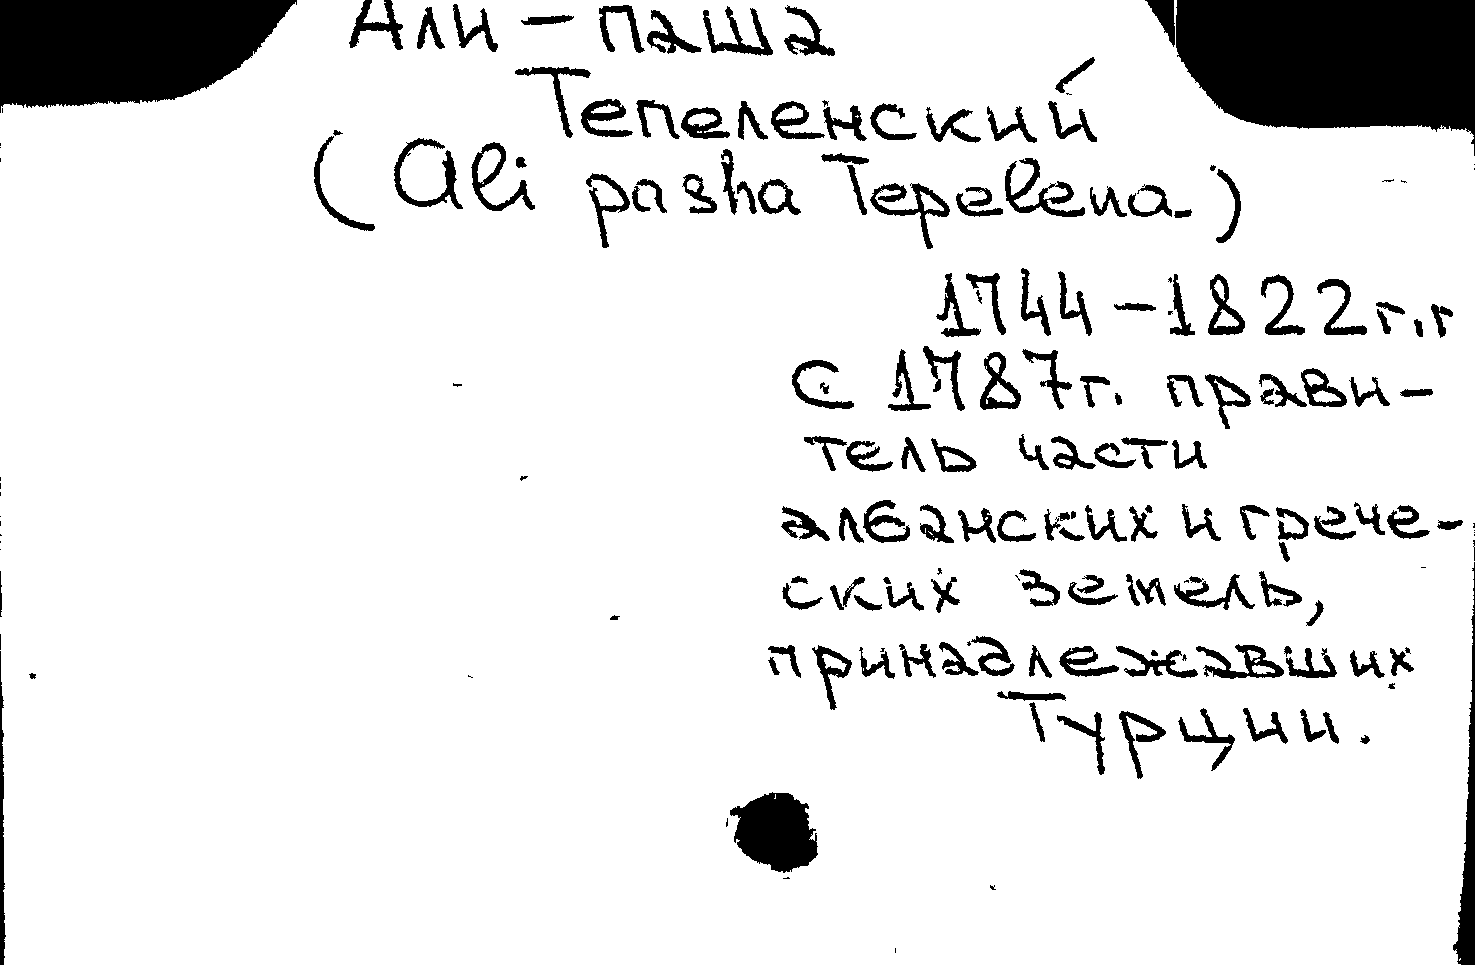 Али – паша
Тепеленский
(Ali pasha Tepelena)
1744 – 1822 г.г
С 1787 г. прави-
тель части
албанских и грече-
ских земель,
принадлежавших
Турции.